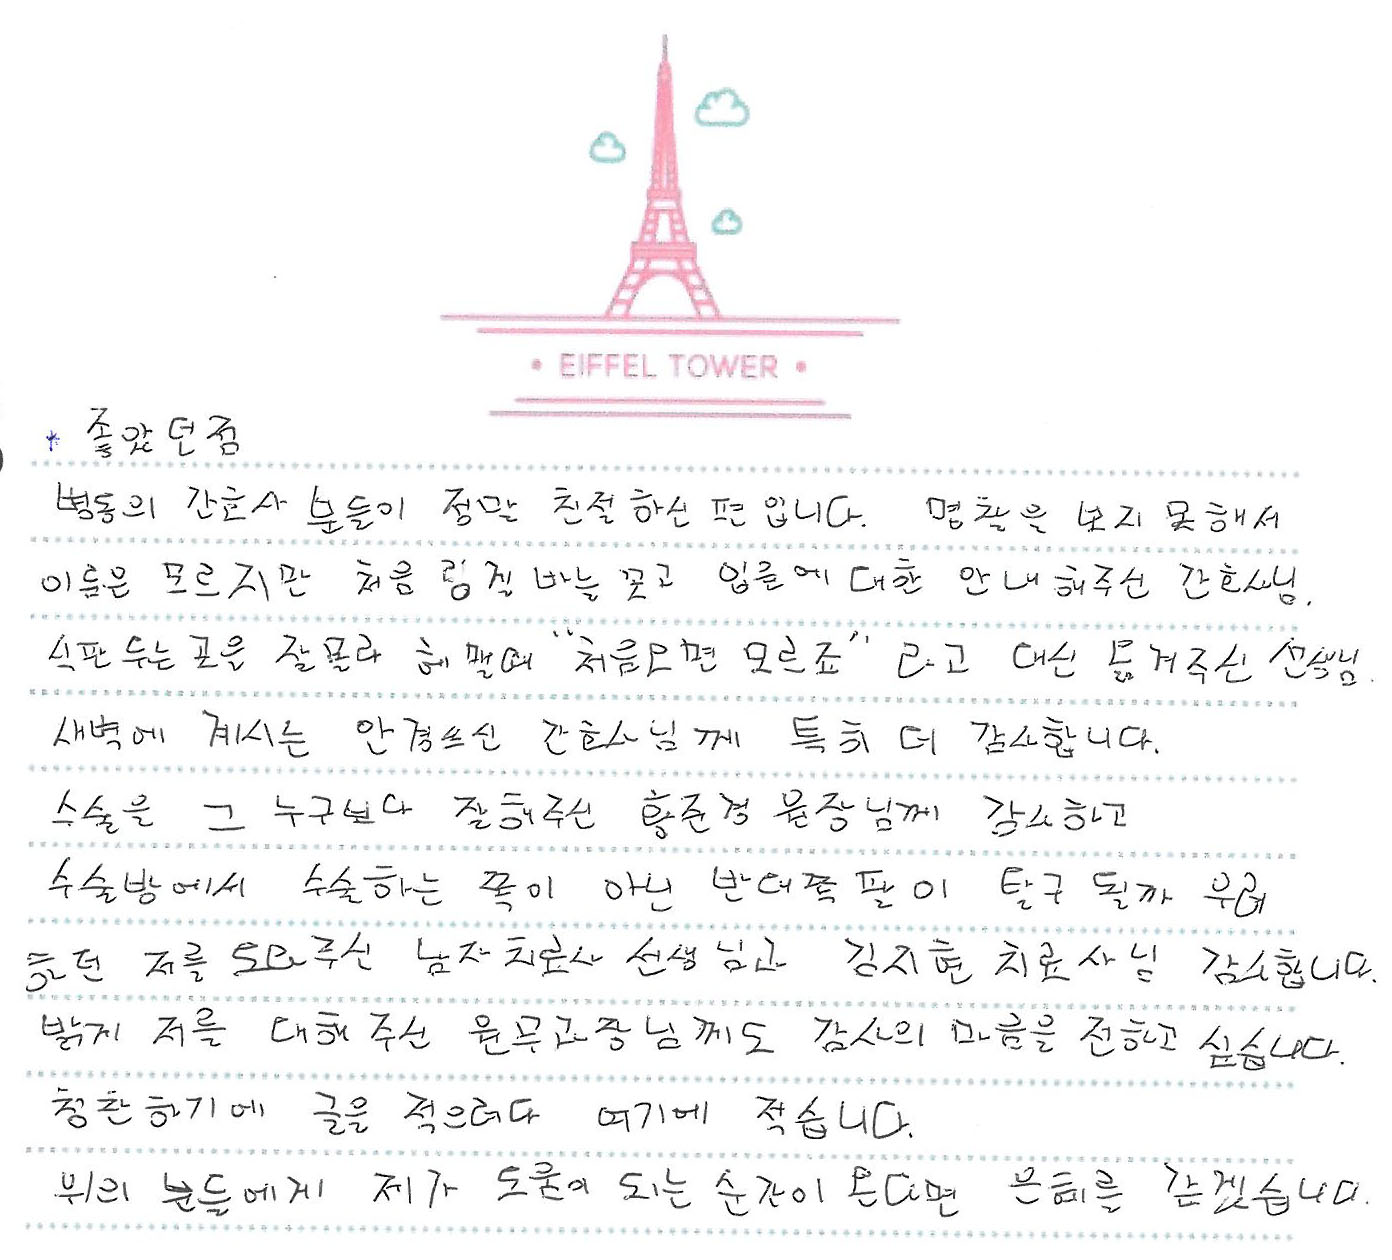 • EIFFEL TOWER •
* 좋았던점
병동의 간호사 분들이 정말 친절하신 편입니다. 명찰을 보지 못해서
이름은 모르지만 처음 링겔 바늘 꽂고 입원에 대한 안내해주신 간호사님.
식판 두는 곳을 잘몰라 헤맬때 "처음오면 모르죠" 라고 대신 옮겨주신 선생님.
새벽에 계시는 안경쓰신 간호사님께 특히 더 감사합니다.
수술을 그 누구보다 잘해주신 황준경 원장님께 감사하고
수술방에서 수술하는 쪽이 아닌 반대쪽 팔이 탈구 될까 우려
했던 저를 도와주신 남자치료사 선생님과 김지현 치료사님 감사합니다.
밝게 저를 대해주신 원무과장님께도 감사의 마음을 전하고 싶습니다.
칭찬하기에 글을 적으려다 여기에 적습니다.
위의 분들에게 제가 도움이 되는 순간이 온다면 은혜를 갚겠습니다.